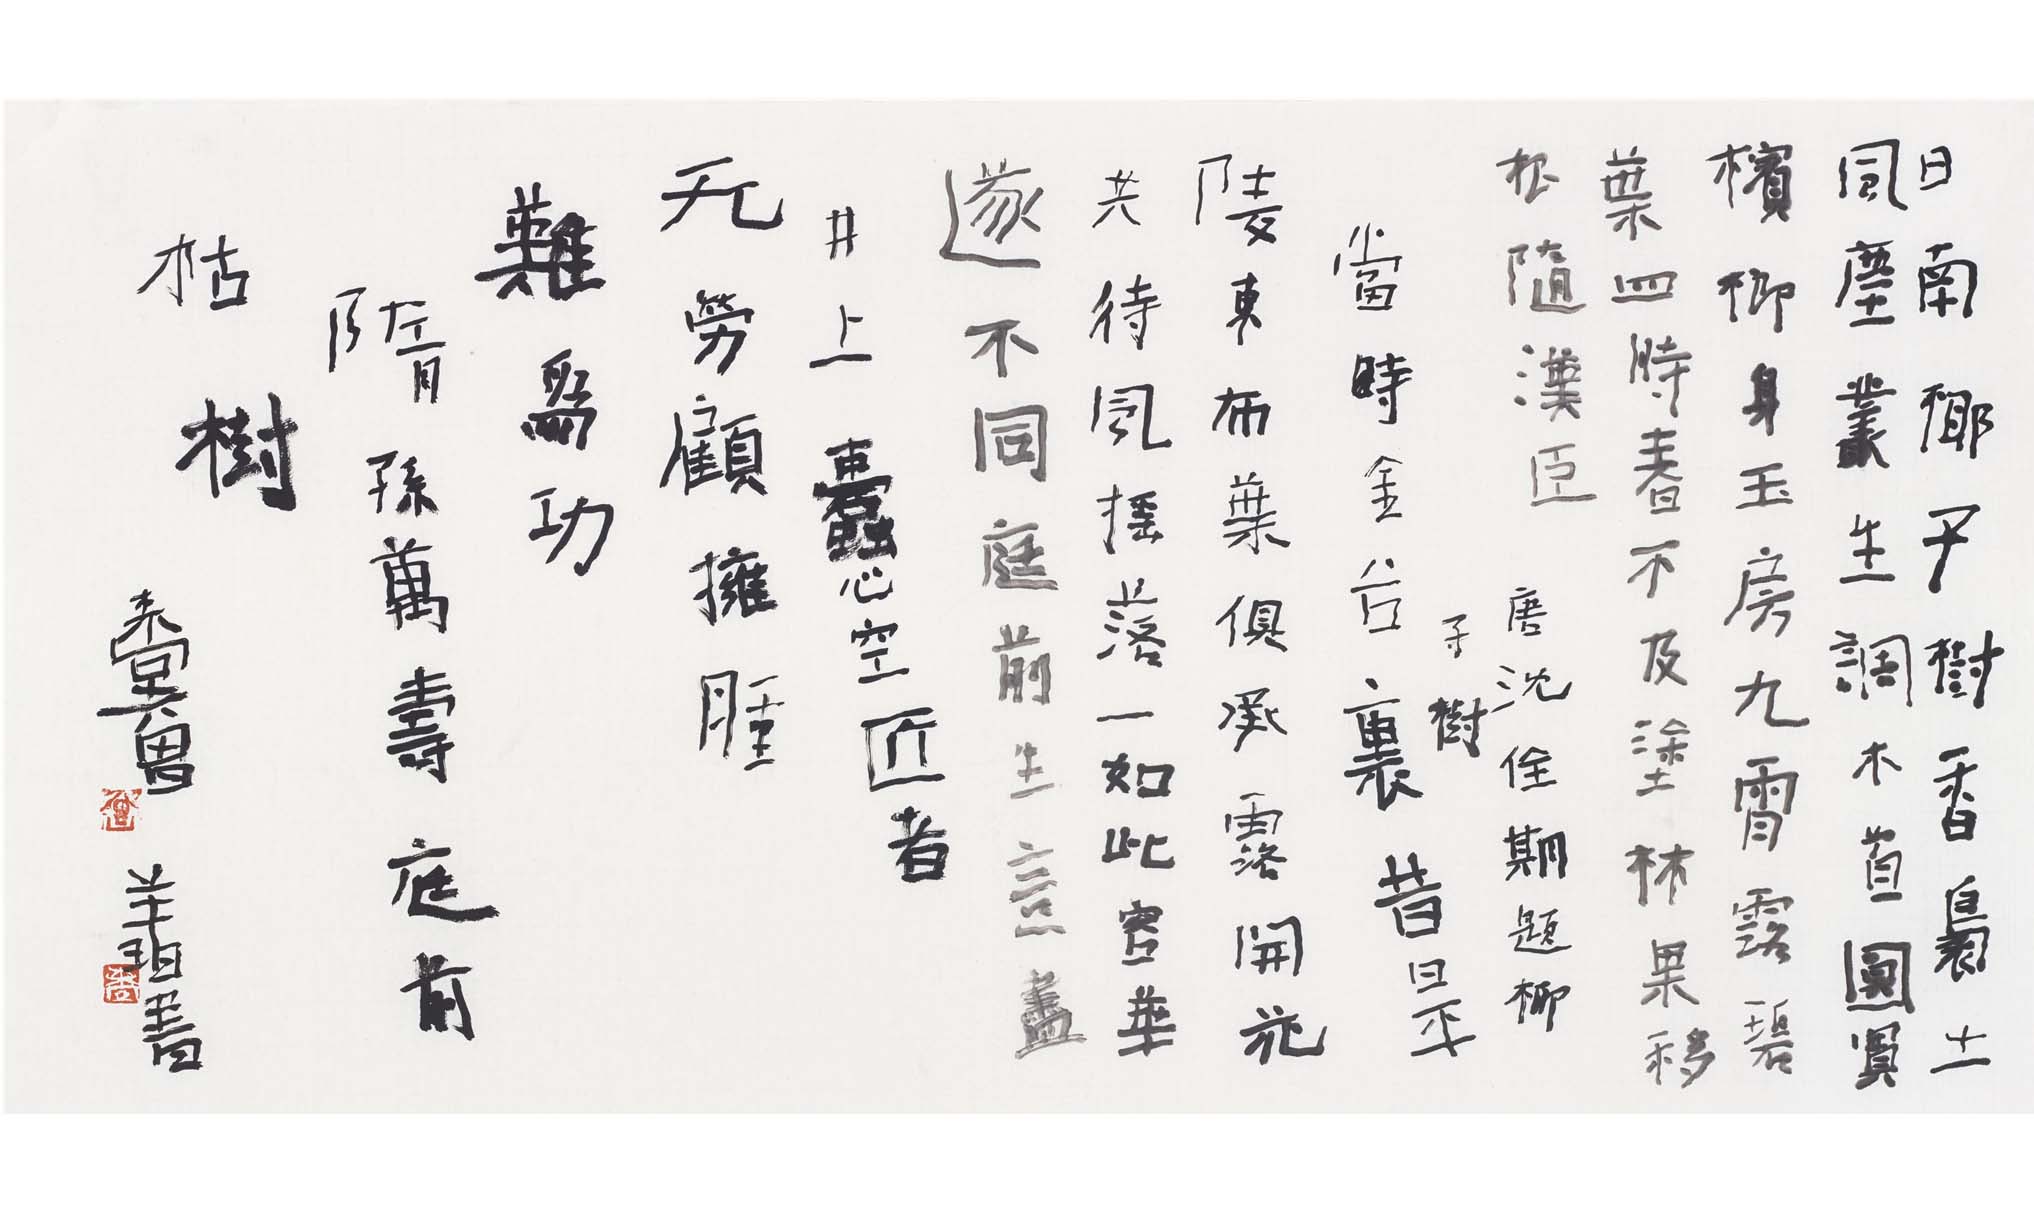 日南椰子樹香裊土
風塵叢生調木首圓實
檳榔身玉房九霄露碧
葉四時春不及塗林果移
根隨漢臣
唐沈佺期題椰
子樹
當時金台裏昔日平
陵東布葉俱承露開花
共待風搖落一如此容華
遂不同庭前生意盡
井上蠹心空匠者
无勞顧擁腫
難爲功
隋孫萬壽庭前
枯樹
書